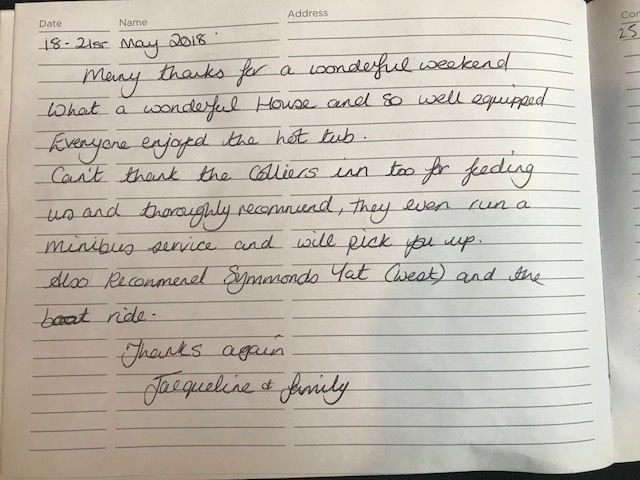 Date Name Address
18 - 21st May 2018
Many thanks for a wonderful weekend
What a wonderful House and so well equipped
Everyone enjoyed the hot tub.
Can't thank the Colliers inn too for feeding
us and thoroughly recommend, they even run a
minibus service and will pick you up.
Also Recommend Symmonds Yat (west) and the
boat ride.
Thanks again
Jacqueline & family
Co
25